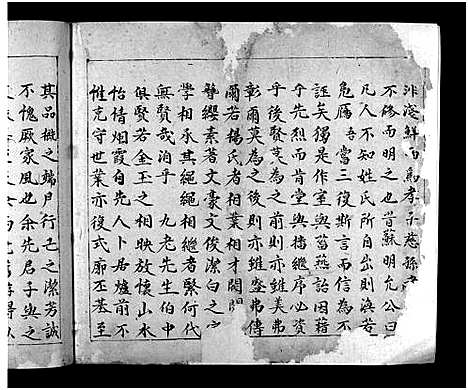 非淺鮮而為孝子慈孫
不修而明之也昔蘇明允公曰
凡人不知姓氏所自出則滇若
危厲吾嘗三復斯言而信為不
誣矣獨是作室與菑燕詒因藉
乎先烈而肯堂與播繼序必資
乎後賢莫為之前則亦雖美弗
彰爾莫為之後則亦雖盛弗傳
爾若楊氏者相葉相才閥閱
簪纓素著文豪文俊潔白之
學相承其繩繩相繼者繄何代
無賢哉洎乎 九老先生伯中
俱賢若金玉之相映放懷山水
怡情烟霞自先人卜居爐前不
惟克守世業亦復式廓丕基至
其品概之端戶行己之潔芳誠
不愧厥家風也余先君子與之